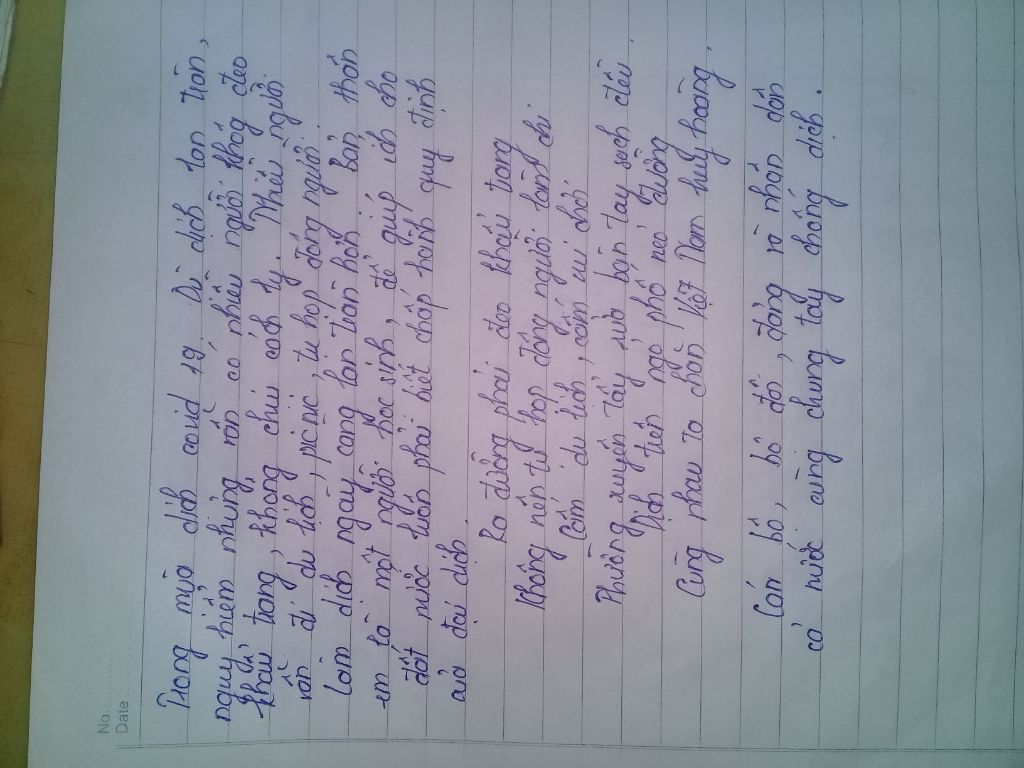 No.
Date
Trong mùa dịch covid 19. Dù dịch lan tràn,
nguy hiểm nhưng vẫn có nhiều người không đeo
khẩu trang, không chiu cách ly. Nhiều người
vẫn đi du lịch, picnic, tu họp đông người.
Làm dịch ngày càng lan tràn hơn. Bản thân
em là một người học sinh, để giúp ích cho
đất nước luôn phải biết chấp hành quy định
của đại dịch.
Ra đường phải đeo khẩu trang
Không nên tụ họp đông người làm chi
Cấm du lịch, cấm vui chơi
Thường xuyên rửa bàn tay sạch đều
Dịch trên ngõ phố nẻo đường
Cùng nhau ta chặn Việt Nam huy hoàng.
Cán bộ, bộ đội, đảng và nhân dân
cả nước cùng chung tay chống dịch.